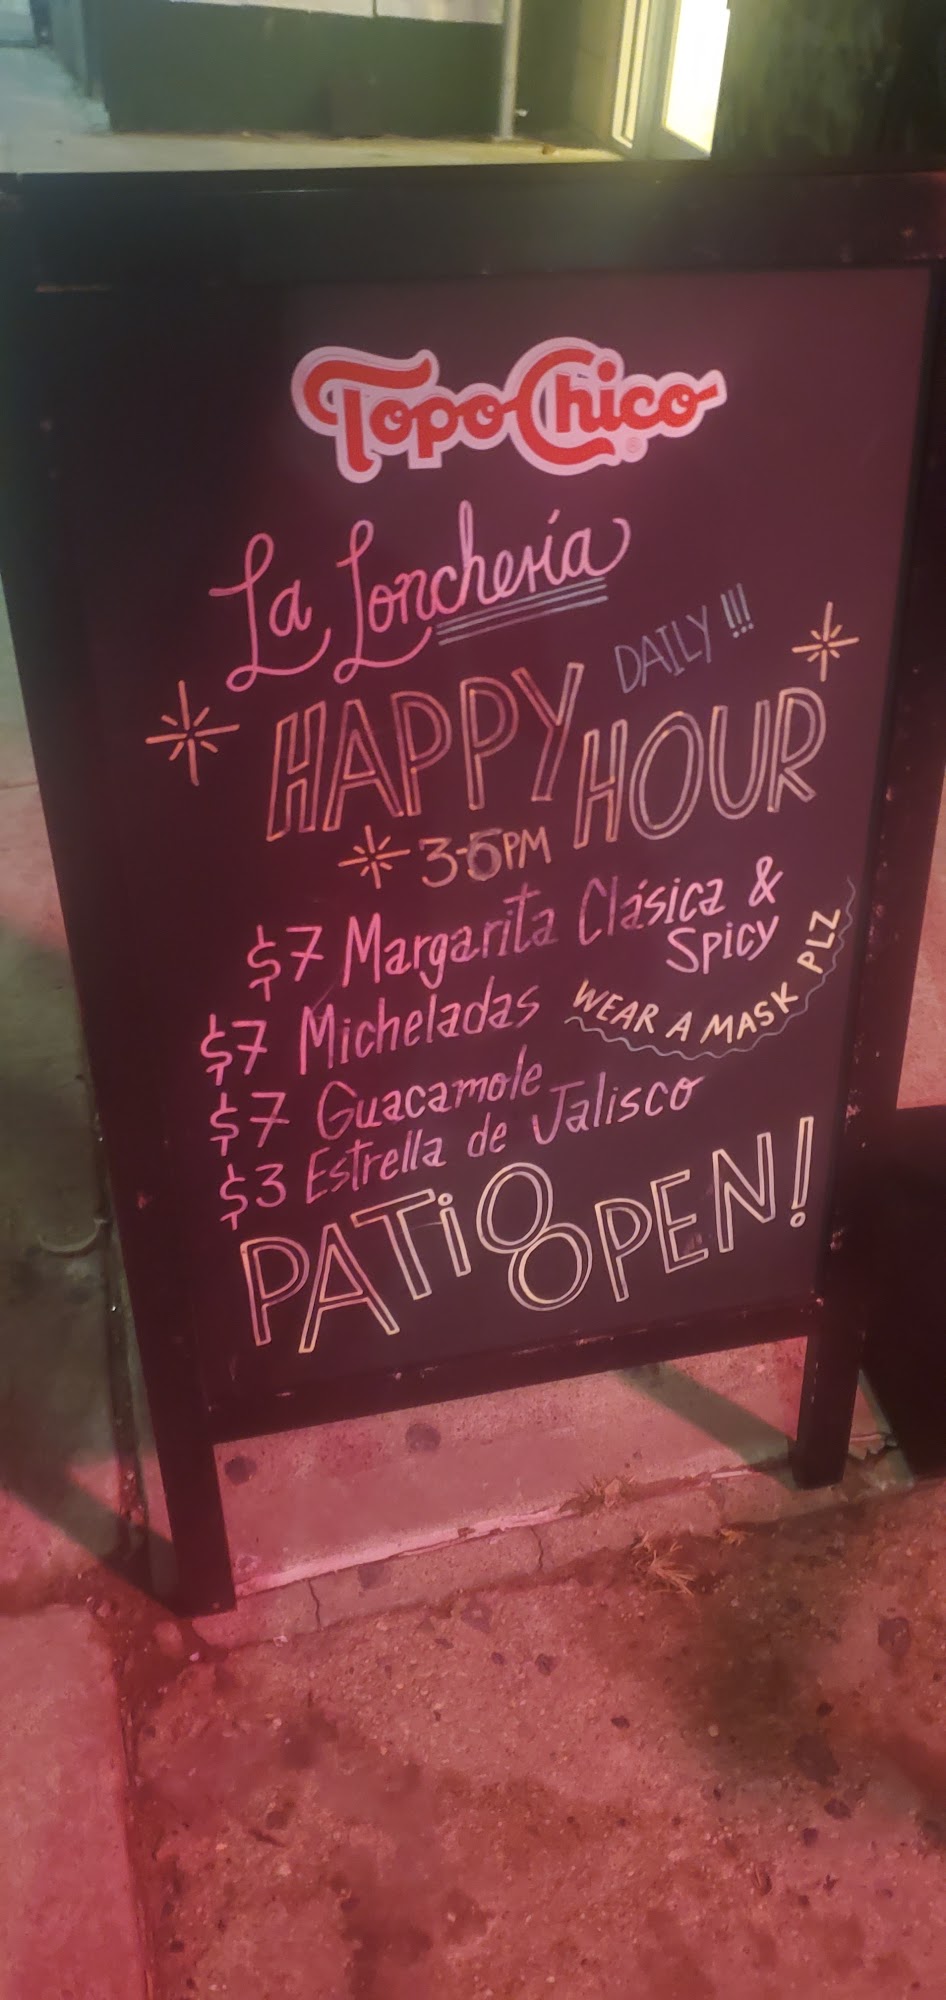 Topo Chico
La Lonchería
DAILY !!!
HAPPY HOUR
3-6PM
$7 Margarita Clásica &
Spicy
$7 Micheladas
WEAR A MASK PLZ
$7 Guacamole
$3 Estrella de Jalisco
PATiO OPEN!